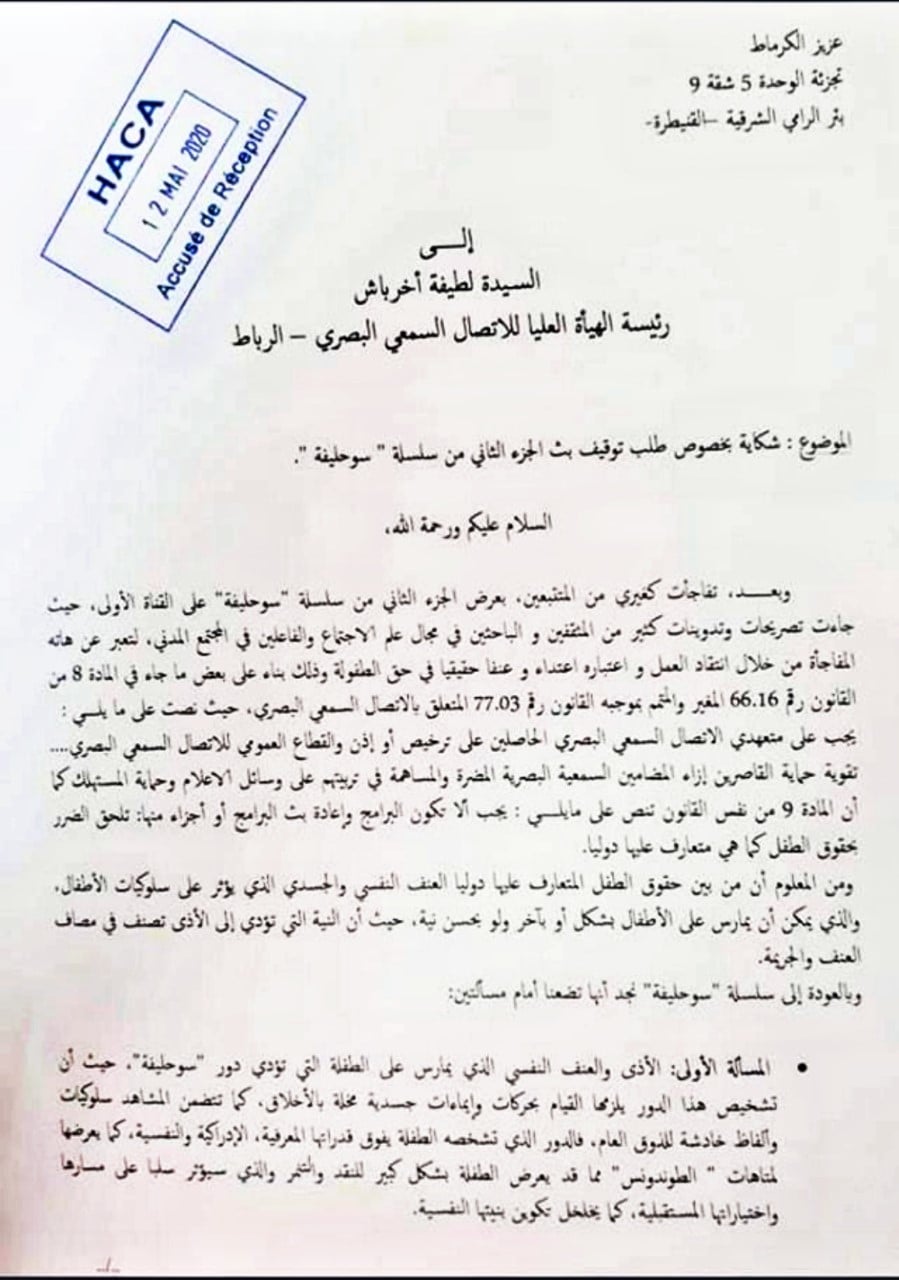 عزيز الكرماط
تجزئة الوحدة 5 شقة 9
بئر الرامي الشرقية –القنيطرة-
HACA
12 MAI 2020
Accusé de Réception
إلــــى
السيدة لطيفة أخرباش
رئيسة الهيأة العليا للاتصال السمعي البصري – الرباط
الموضوع : شكاية بخصوص طلب توقيف بث الجزء الثاني من سلسلة " سوحليفة ".
السلام عليكم ورحمة الله،
وبعـــد، تفاجأت كغيري من المتتبعين، بعرض الجزء الثاني من سلسلة "سوحليفة" على القناة الأولى، حيث
جاءت تصريحات وتدوينات كثير من المثقفين و الباحثين في مجال علم الاجتماع والفاعلين في المجتمع المدني، لتعبر عن هاته
المفاجأة من خلال انتقاد العمل و اعتباره اعتداء و عنفا حقيقيا في حق الطفولة وذلك بناء على بعض ما جاء في المادة 8 من
القانون رقم 66.16 المغير والمتمم بموجبه القانون رقم 77.03 المتعلق بالاتصال السمعي البصري، حيث نصت على ما يلـــي :
يجب على متعهدي الاتصال السمعي البصري الحاصلين على ترخيص أو إذن والقطاع العمومي للاتصال السمعي البصري....
تقوية حماية القاصرين إزاء المضامين السمعية البصرية المضرة والمساهمة في تربيتهم على وسائل الاعلام وحماية المستهلك كما
أن المادة 9 من نفس القانون تنص على مايلـــي : يجب ألا تكون البرامج وإعادة بث البرامج أو أجزاء منها: تلحق الضرر
بحقوق الطفل كما هي متعارف عليها دوليا.
ومن المعلوم أن من بين حقوق الطفل المتعارف عليها دوليا العنف النفسي والجسدي الذي يؤثر على سلوكيات الأطفال،
والذي يمكن أن يمارس على الأطفال بشكل أو بآخر ولو بحسن نية، حيث أن النية التي تؤدي إلى الأذى تصنف في مصاف
العنف والجريمة.
وبالعودة إلى سلسلة "سوحليفة" نجد أنها تضعنا أمام مسألتين:
• المسألة الأولى: الأذى والعنف النفسي الذي يمارس على الطفلة التي تؤدي دور "سوحليفة"، حيث أن
تشخيص هذا الدور يلزمها القيام بحركات وإيماءات جسدية مخلة بالأخلاق، كما تتضمن المشاهد سلوكيات
وألفاظ خادشة للذوق العام، فالدور الذي تشخصه الطفلة يفوق قدراتها المعرفية، الإدراكية والنفسية، كما يعرضها
لمتاهات " الطوندونس" مما قد يعرض الطفلة بشكل كبير للنقد والتنمر والذي سيؤثر سلبا على مسارها
واختياراتها المستقبلية، كما يخلخل تكوين بنيتها النفسية.